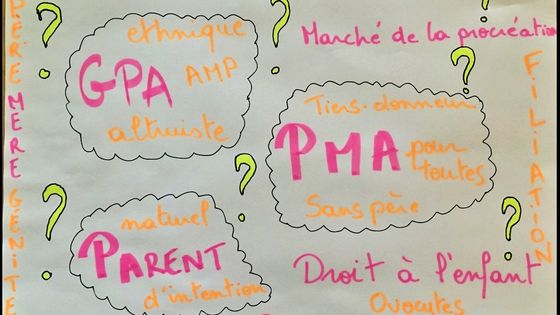 PERE MERE GENITE
ethnique
GPA AMP
altruiste
Marché de la procréation
Tiers-donneur
PMA pour
toutes
Sans père
FILIATION
naturel
PARENT
d'intention
Droit à l'enfant
Ovocytes